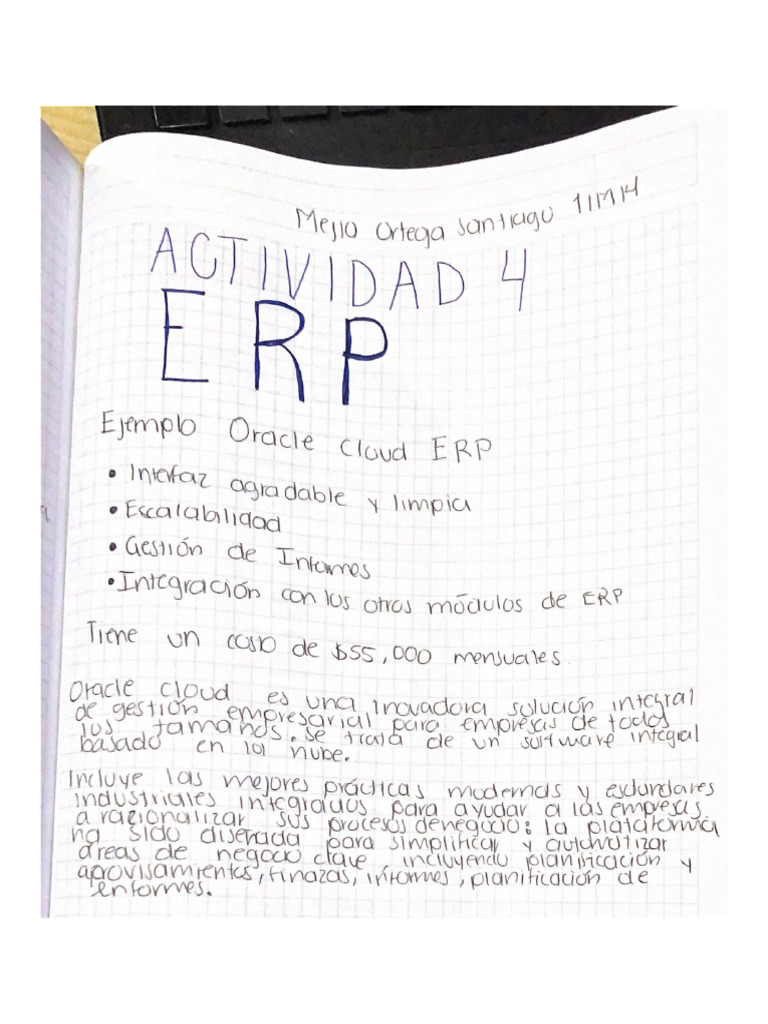 Mejia Ortega Santiago 1IM14
ACTIVIDAD 4
ERP
Ejemplo Oracle Cloud ERP
• Interfaz agradable y limpia
• Escalabilidad
• Gestión de Informes
• Integración con los otros módulos de ERP
Tiene un costo de $55,000 mensuales.
Oracle cloud es una inovadora solución integral
de gestión empresarial para empresas de todos
los tamaños. se trata de un software integral
basado en la nube.
Incluye las mejores prácticas modernas y estandares
industriales integrados para ayudar a las empresas
a razionalizar sus procesos de negocio: la plataforma
ha sido diseñada para simplificar y automatizar
áreas de negocio clave, incluyendo planificación y
aprovisamientos, finazas, informes, planificación de
enformes.